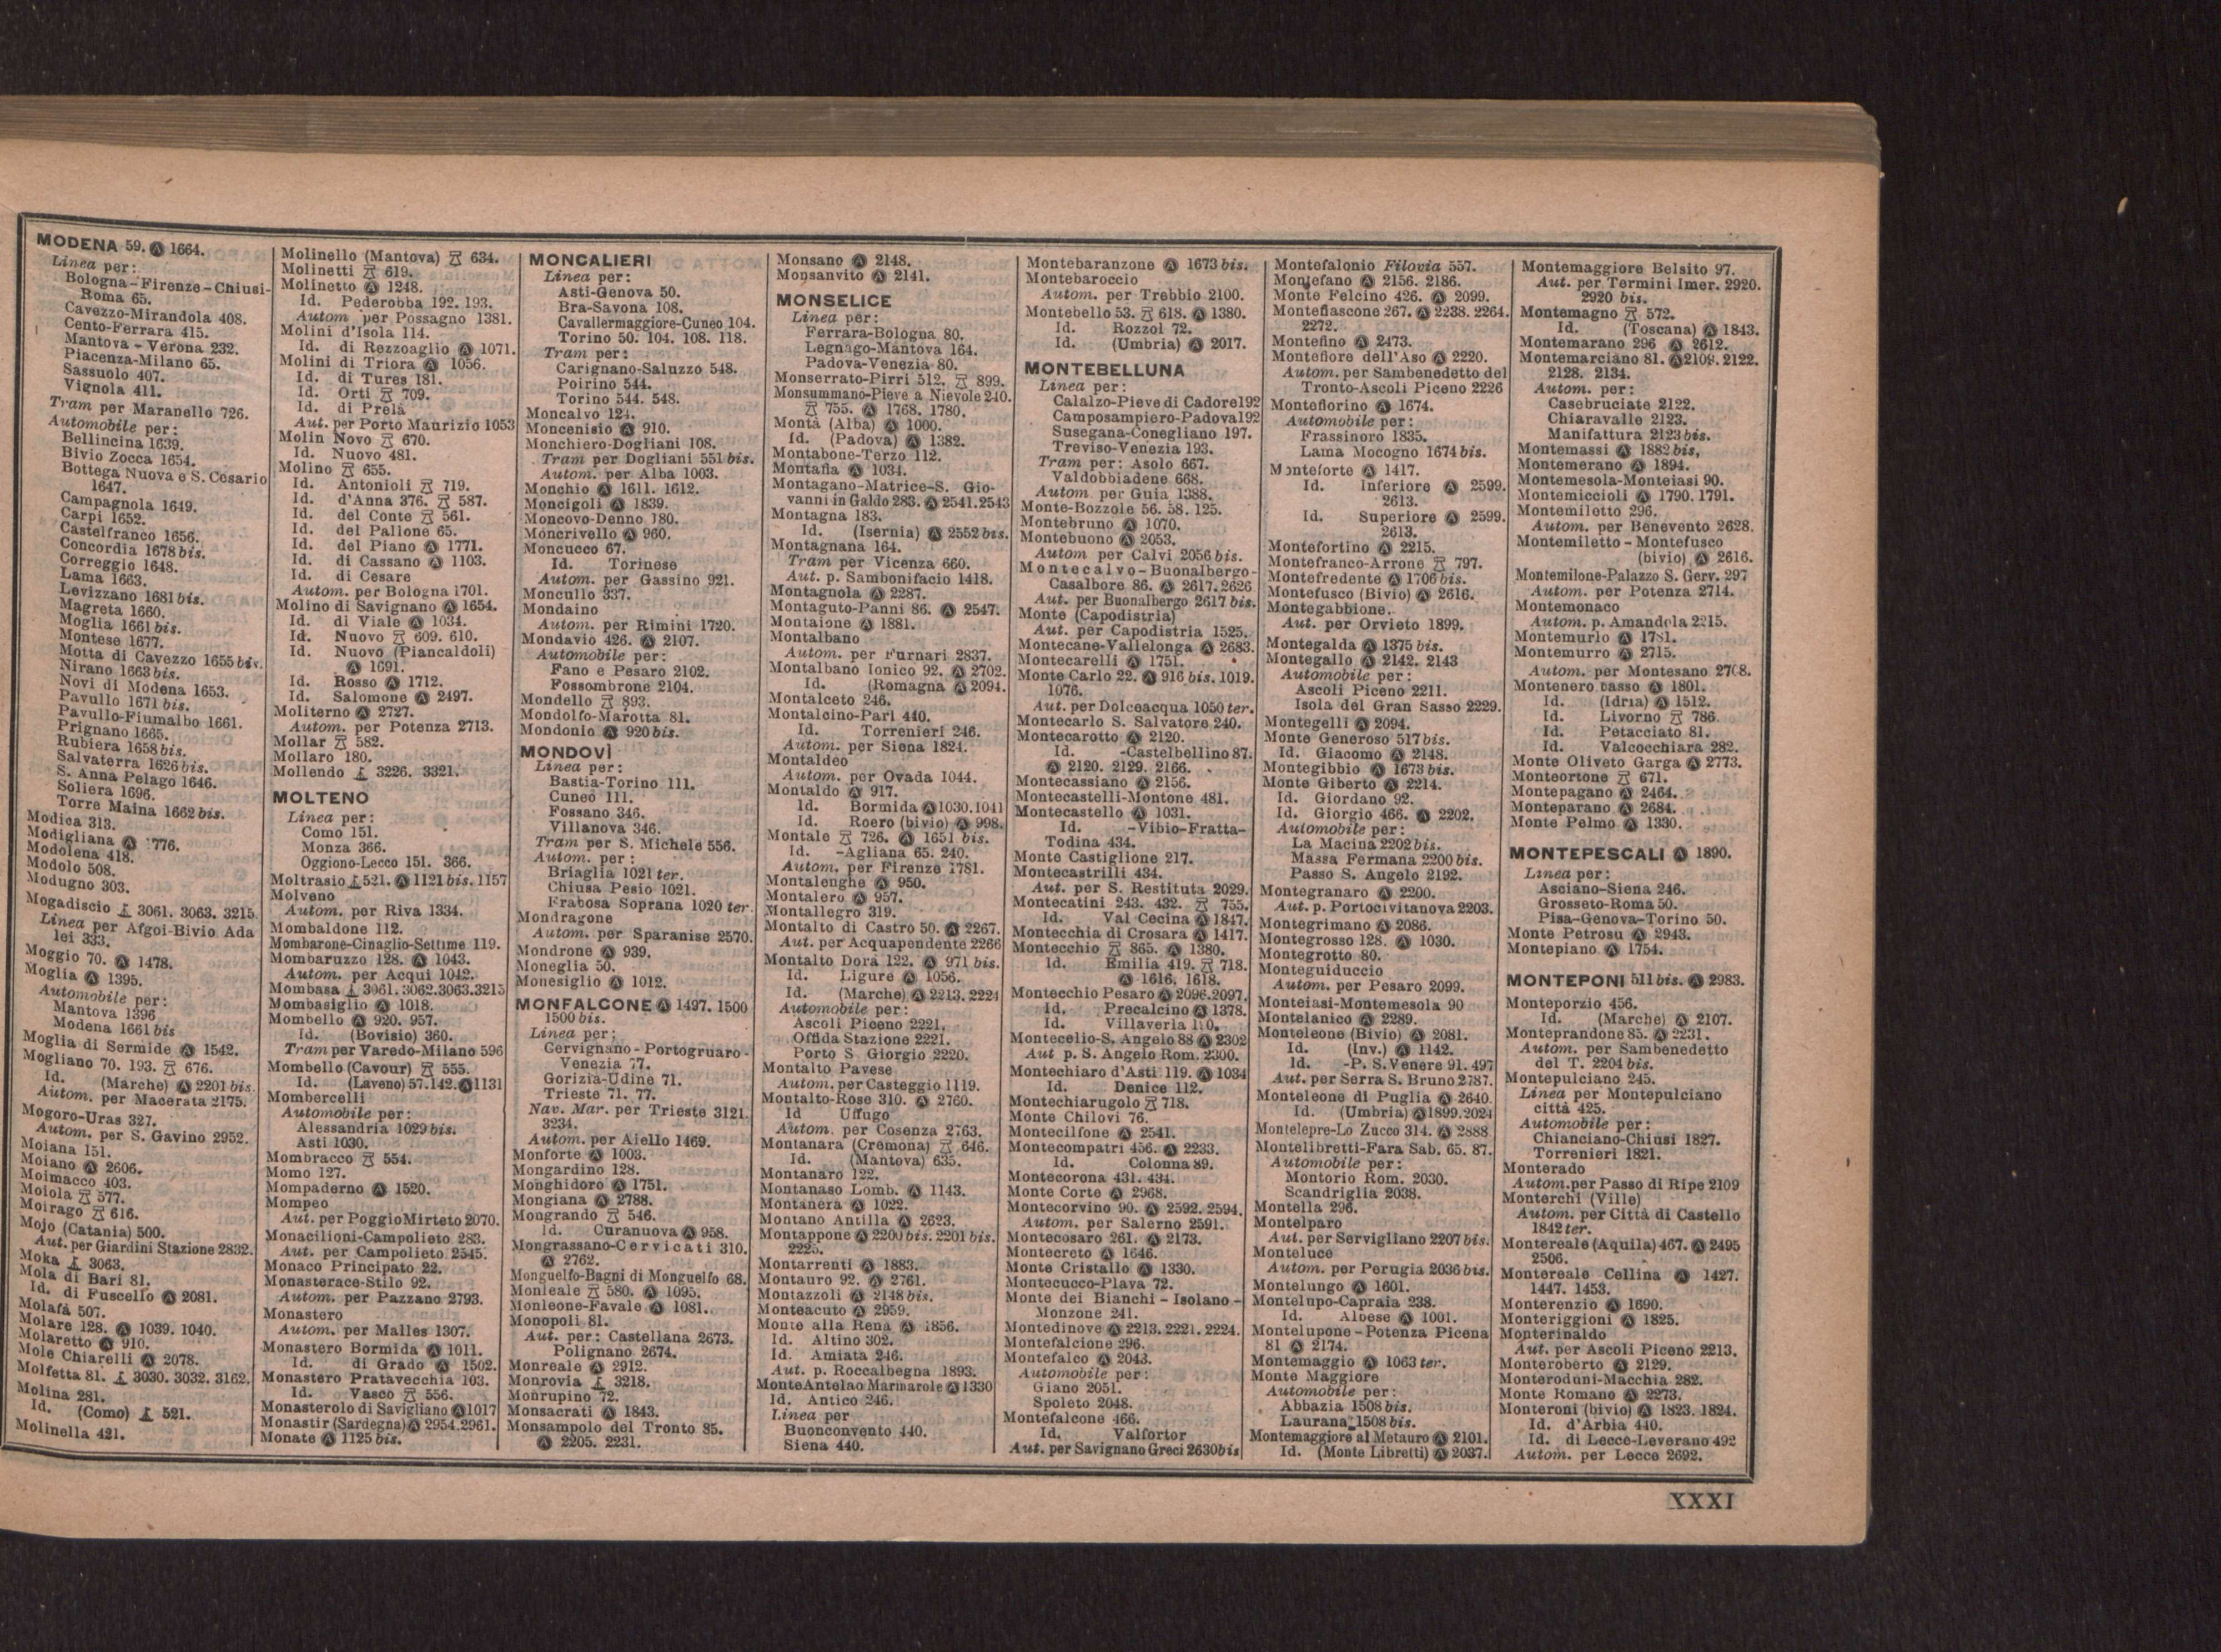 MODENA 59. Ⓐ 1664.
Linea per:
Bologna-Firenze-Chiusi-
Roma 65.
Cavezzo-Mirandola 408.
Cento-Ferrara 415.
Mantova-Verona 232.
Piacenza-Milano 65.
Sassuolo 407.
Vignola 411.
Tram per Maranello 726.
Automobile per:
Bellincina 1639.
Bivio Zocca 1654.
Bottega Nuova e S. Cesario
1647.
Campagnola 1649.
Carpi 1652.
Castelfranco 1656.
Concordia 1678 bis.
Correggio 1648.
Lama 1663.
Levizzano 1681 bis.
Magreta 1660.
Moglia 1661 bis.
Montese 1677.
Motta di Cavezzo 1655 bis.
Nirano 1663 bis.
Novi di Modena 1653.
Pavullo 1671 bis.
Pavullo-Fiumalbo 1661.
Prignano 1665.
Rubiera 1658 bis.
Salvaterra 1626 bis.
S. Anna Pelago 1646.
Soliera 1696.
Torre Maina 1662 bis.
Modica 313.
Modigliana Ⓐ 1776.
Modolena 418.
Modolo 508.
Modugno 303.
Mogadiscio 3061. 3063. 3215.
Linea per Afgoi-Bivio Ada
lei 333.
Moggio 70. Ⓐ 1478.
Moglia Ⓐ 1395.
Automobile per:
Mantova 1396
Modena 1661 bis
Moglia di Sermide Ⓐ 1542.
Mogliano 70. 193. 676.
Id. (Marche) Ⓐ 2201 bis.
Autom. per Macerata 2175.
Mogoro-Uras 327.
Autom. per S. Gavino 2952.
Moiana 151.
Moiano Ⓐ 2606.
Moimacco 403.
Moiola 577.
Moirago 616.
Mojo (Catania) 500.
Aut. per Giardini Stazione 2832.
Moka 3063.
Mola di Bari 81.
Id. di Fuscello Ⓐ 2081.
Molafà 507.
Molare 128. Ⓐ 1039. 1040.
Molaretto Ⓐ 910.
Mole Chiarelli Ⓐ 2078.
Molfetta 81. 3030. 3032. 3162.
Molina 281.
Id. (Como) 521.
Molinella 421.
Molinello (Mantova) 634.
Molinetti 619.
Molinetto Ⓐ 1248.
Id. Pederobba 192. 193.
Autom per Possagno 1381.
Molini d'Isola 114.
Id. di Rezzoaglio Ⓐ 1071.
Molini di Triora Ⓐ 1056.
Id. di Tures 181.
Id. Orti 709.
Id. di Prelà
Aut. per Porto Maurizio 1053
Molin Novo 670.
Id. Nuovo 481.
Molino 655.
Id. Antonioli 719.
Id. d'Anna 376. 587.
Id. del Conte 561.
Id. del Pallone 65.
Id. del Piano Ⓐ 1771.
Id. di Cassano Ⓐ 1103.
Id. di Cesare
Autom. per Bologna 1701.
Molino di Savignano Ⓐ 1654.
Id. di Viale Ⓐ 1034.
Id. Nuovo 609. 610.
Id. Nuovo (Piancaldoli)
Ⓐ 1691.
Id. Rosso Ⓐ 1712.
Id. Salomone Ⓐ 2497.
Moliterno Ⓐ 2727.
Autom. per Potenza 2713.
Mollar 582.
Mollaro 180.
Mollendo 3226. 3321.
MOLTENO
Linea per:
Como 151.
Monza 366.
Oggiono-Lecco 151. 366.
Moltrasio 521. Ⓐ 1121 bis. 1157
Molveno
Autom. per Riva 1334.
Mombaldone 112.
Mombarone-Cinaglio-Settime 119.
Mombaruzzo 128. Ⓐ 1043.
Autom. per Acqui 1042.
Mombasa 3061. 3062. 3063. 3215
Mombasiglio Ⓐ 1018.
Mombello Ⓐ 920. 957.
Id. (Bovisio) 360.
Tram per Varedo-Milano 596
Mombello (Cavour) 555.
Id. (Laveno) 57. 142. Ⓐ 1131
Mombercelli
Automobile per:
Alessandria 1029 bis.
Asti 1030.
Mombracco 554.
Momo 127.
Mompaderno Ⓐ 1520.
Mompeo
Aut. per Poggio Mirteto 2070.
Monacilioni-Campolieto 283.
Aut. per Campolieto 2545.
Monaco Principato 22.
Monasterace-Stilo 92.
Autom. per Pazzano 2793.
Monastero
Autom. per Malles 1307.
Monastero Bormida Ⓐ 1011.
Id. di Grado Ⓐ 1502.
Monastero Pratavecchia 103.
Id. Vasco 556.
Monasterolo di Savigliano Ⓐ 1017
Monastir (Sardegna) Ⓐ 2954. 2961.
Monate Ⓐ 1125 bis.
MONCALIERI
Linea per:
Asti-Genova 50.
Bra-Savona 108.
Cavallermaggiore-Cuneo 104.
Torino 50. 104. 108. 118.
Tram per:
Carignano-Saluzzo 548.
Poirino 544.
Torino 544. 548.
Moncalvo 124.
Moncenisio Ⓐ 910.
Monchiero-Dogliani 108.
Tram per Dogliani 551 bis.
Autom. per Alba 1003.
Monchio Ⓐ 1611. 1612.
Moncigoli Ⓐ 1839.
Moncovo-Denno 180.
Moncrivello Ⓐ 960.
Moncucco 67.
Id. Torinese
Autom. per Gassino 921.
Moncullo 337.
Mondaino
Autom. per Rimini 1720.
Mondavio 426. Ⓐ 2107.
Automobile per:
Fano e Pesaro 2102.
Fossombrone 2104.
Mondello 893.
Mondolfo-Marotta 81.
Mondonio Ⓐ 920 bis.
MONDOVÌ
Linea per:
Bastia-Torino 111.
Cuneo 111.
Fossano 346.
Villanova 346.
Tram per S. Michele 556.
Autom. per:
Briaglia 1021 ter.
Chiusa Pesio 1021.
Frabosa Soprana 1020 ter.
Mondragone
Autom. per Sparanise 2570.
Mondrone Ⓐ 939.
Moneglia 50.
Monesiglio Ⓐ 1012.
MONFALCONE Ⓐ 1497. 1500
1500 bis.
Linea per:
Cervignano-Portogruaro-
Venezia 77.
Gorizia-Udine 71.
Trieste 71. 77.
Nav. Mar. per Trieste 3121.
3234.
Autom. per Aiello 1469.
Monforte Ⓐ 1003.
Mongardino 128.
Monghidoro Ⓐ 1751.
Mongiana Ⓐ 2788.
Mongrando 546.
Id. Curanuova Ⓐ 958.
Mongrassano-Cervicati 310.
Ⓐ 2762.
Monguelfo-Bagni di Monguelfo 68.
Monleale 580. Ⓐ 1095.
Monleone-Favale Ⓐ 1081.
Monopoli 81.
Aut. per: Castellana 2673.
Polignano 2674.
Monreale Ⓐ 2912.
Monrovia 3218.
Monrupino 72.
Monsacrati Ⓐ 1843.
Monsampolo del Tronto 85.
Ⓐ 2205. 2231.
Monsano Ⓐ 2148.
Monsanvito Ⓐ 2141.
MONSELICE
Linea per:
Ferrara-Bologna 80.
Legnago-Mantova 164.
Padova-Venezia 80.
Monserrato-Pirri 512. 899.
Monsummano-Pieve a Nievole 240.
755. Ⓐ 1768. 1780.
Montà (Alba) Ⓐ 1000.
Id. (Padova) Ⓐ 1382.
Montabone-Terzo 112.
Montafia Ⓐ 1034.
Montagano-Matrice-S. Gio-
vanni in Galdo 283. Ⓐ 2541. 2543
Montagna 183.
Id. (Isernia) Ⓐ 2552 bis.
Montagnana 164.
Tram per Vicenza 660.
Aut. p. Sambonifacio 1418.
Montagnola Ⓐ 2287.
Montaguto-Panni 86. Ⓐ 2547.
Montaione Ⓐ 1881.
Montalbano
Autom. per Furnari 2837.
Montalbano Ionico 92. Ⓐ 2702.
Id. (Romagna Ⓐ 2094.
Montalceto 246.
Montalcino-Pari 440.
Id. Torrenieri 246.
Autom. per Siena 1824.
Montaldeo
Autom. per Ovada 1044.
Montaldo Ⓐ 917.
Id. Bormida Ⓐ 1030. 1041
Id. Roero (bivio) Ⓐ 998.
Montale 726. Ⓐ 1651 bis.
Id. -Agliana 65. 240.
Autom. per Firenze 1781.
Montalenghe Ⓐ 950.
Montalero Ⓐ 957.
Montallegro 319.
Montalto di Castro 50. Ⓐ 2267.
Aut. per Acquapendente 2266
Montalto Dora 122. Ⓐ 971 bis.
Id. Ligure Ⓐ 1056.
Id. (Marche) Ⓐ 2213. 2224
Automobile per:
Ascoli Piceno 2221.
Offida Stazione 2221.
Porto S Giorgio 2220.
Montalto Pavese
Autom. per Casteggio 1119.
Montalto-Rose 310. Ⓐ 2760.
Id Uffugo
Autom. per Cosenza 2763.
Montanara (Cremona) 646.
Id. (Mantova) 635.
Montanaro 122.
Montanaso Lomb. Ⓐ 1143.
Montanera Ⓐ 1022.
Montano Antilla Ⓐ 2623.
Montappone Ⓐ 2200 bis. 2201 bis.
2225.
Montarrenti Ⓐ 1883.
Montauro 92. Ⓐ 2761.
Montazzoli Ⓐ 2148 bis.
Monteacuto Ⓐ 2959.
Monte alla Rena Ⓐ 1856.
Id. Altino 302.
Id. Amiata 246.
Aut. p. Roccalbegna 1893.
Monte Antelao Marmarole Ⓐ 1330
Id. Antico 246.
Linea per
Buonconvento 440.
Siena 440.
Montebaranzone Ⓐ 1673 bis.
Montebaroccio
Autom. per Trebbio 2100.
Montebello 53. 618. Ⓐ 1380.
Id. Rozzol 72.
Id. (Umbria) Ⓐ 2017.
MONTEBELLUNA
Linea per:
Calalzo-Pieve di Cadore 192
Camposampiero-Padova 192
Susegana-Conegliano 197.
Treviso-Venezia 193.
Tram per: Asolo 667.
Valdobbiadene 668.
Autom per Guia 1388.
Monte-Bozzole 56. 58. 125.
Montebruno Ⓐ 1070.
Montebuono Ⓐ 2053.
Autom per Calvi 2056 bis.
Montecalvo-Buonalbergo-
Casalbore 86. Ⓐ 2617. 2626
Aut. per Buonalbergo 2617 bis.
Monte (Capodistria)
Aut. per Capodistria 1525.
Montecane-Vallelonga Ⓐ 2683.
Montecarelli Ⓐ 1751.
Monte Carlo 22. Ⓐ 916 bis. 1019.
1076.
Aut. per Dolceacqua 1050 ter.
Montecarlo S. Salvatore 240.
Montecarotto Ⓐ 2120.
Id. -Castelbellino 87.
Ⓐ 2120. 2129. 2166.
Montecassiano Ⓐ 2156.
Montecastelli-Montone 481.
Montecastello Ⓐ 1031.
Id. -Vibio-Fratta-
Todina 434.
Monte Castiglione 217.
Montecastrilli 434.
Aut. per S. Restituta 2029.
Montecatini 243. 432. 755.
Id. Val Cecina Ⓐ 1847.
Montecchia di Crosara Ⓐ 1417.
Montecchio 865. Ⓐ 1380.
Id. Emilia 419. 718.
Ⓐ 1616. 1618.
Montecchio Pesaro Ⓐ 2096. 2097.
Id. Precalcino Ⓐ 1378.
Id. Villaveria
Montecelio-S. Angelo 88 Ⓐ 2302
Aut p. S. Angelo Rom. 2300.
Montechiaro d'Asti 119. Ⓐ 1034
Id. Denice 112.
Montechiarugolo 718.
Monte Chilovi 76.
Montecilfone Ⓐ 2541.
Montecompatri 456. Ⓐ 2233.
Id. Colonna 89.
Montecorona 431. 434.
Monte Corte Ⓐ 2968.
Montecorvino 90. Ⓐ 2592. 2594.
Autom. per Salerno 2591.
Montecosaro 261. Ⓐ 2173.
Montecreto Ⓐ 1646.
Monte Cristallo Ⓐ 1330.
Montecucco-Plava 72.
Monte dei Bianchi-Isolano-
Monzone 241.
Montedinove Ⓐ 2213. 2221. 2224.
Montefalcione 296.
Montefalco Ⓐ 2043.
Automobile per:
Giano 2051.
Spoleto 2048.
Montefalcone 466.
Id. Valfortor
Aut. per Savignano Greci 2630 bis
Montefalonio Filovia 557.
Montefano Ⓐ 2156. 2186.
Monte Felcino 426. Ⓐ 2099.
Montefiascone 267. Ⓐ 2238. 2264.
2272.
Montefino Ⓐ 2473.
Montefiore dell'Aso Ⓐ 2220.
Autom. per Sambenedetto del
Tronto-Ascoli Piceno 2226
Montefiorino Ⓐ 1674.
Automobile per:
Frassinoro 1835.
Lama Mocogno 1674 bis.
Monteforte Ⓐ 1417.
Id. Inferiore Ⓐ 2599.
2613.
Id. Superiore Ⓐ 2599.
2613.
Montefortino Ⓐ 2215.
Montefranco-Arrone 797.
Montefredente Ⓐ 1706 bis.
Montefusco (Bivio) Ⓐ 2616.
Montegabbione.
Aut. per Orvieto 1899.
Montegalda Ⓐ 1375 bis.
Montegallo Ⓐ 2142. 2143
Automobile per:
Ascoli Piceno 2211.
Isola del Gran Sasso 2229.
Montegelli Ⓐ 2094.
Monte Generoso 517 bis.
Id. Giacomo Ⓐ 2148.
Montegibbio Ⓐ 1673 bis.
Monte Giberto Ⓐ 2214.
Id. Giordano 92.
Id. Giorgio 466. Ⓐ 2202.
Automobile per:
La Macina 2202 bis.
Massa Fermana 2200 bis.
Passo S. Angelo 2192.
Montegranaro Ⓐ 2200.
Aut. p. Portocivitanova 2203.
Montegrimano Ⓐ 2086.
Montegrosso 128. Ⓐ 1030.
Montegrotto 80.
Monteguiduccio
Autom. per Pesaro 2099.
Monteiasi-Montemesola 90
Montelanico Ⓐ 2289.
Monteleone (Bivio) Ⓐ 2081.
Id. (Inv.) Ⓐ 1142.
Id. -P. S. Venere 91. 497
Aut. per Serra S. Bruno 2787.
Monteleone di Puglia Ⓐ 2640.
Id. (Umbria) Ⓐ 1899. 2024
Montelepre-Lo Zucco 314. Ⓐ 2888
Montelibretti-Fara Sab. 65. 87.
Automobile per:
Montorio Rom. 2030.
Scandriglia 2038.
Montella 296.
Montelparo
Aut. per Servigliano 2207 bis.
Monteluce
Autom. per Perugia 2036 bis.
Montelungo Ⓐ 1601.
Montelupo-Capraia 238.
Id. Albese Ⓐ 1001.
Montelupone-Potenza Picena
81 Ⓐ 2174.
Montemaggio Ⓐ 1063 ter.
Monte Maggiore
Automobile per:
Abbazia 1508 bis.
Laurana 1508 bis.
Montemaggiore al Metauro Ⓐ 2101.
Id. (Monte Libretti) Ⓐ 2037.
Montemaggiore Belsito 97.
Aut. per Termini Imer. 2920.
2920 bis.
Montemagno 572.
Id. (Toscana) Ⓐ 1843.
Montemarano 296 Ⓐ 2612.
Montemarciano 81. Ⓐ 2109. 2122.
2128. 2134.
Autom. per:
Casebruciate 2122.
Chiaravalle 2123.
Manifattura 2123 bis.
Montemassi Ⓐ 1882 bis,
Montemerano Ⓐ 1894.
Montemesola-Monteiasi 90.
Montemiccioli Ⓐ 1790. 1791.
Montemiletto 296.
Autom. per Benevento 2628.
Montemiletto-Montefusco
(bivio) Ⓐ 2616.
Montemilone-Palazzo S. Gerv. 297
Autom. per Potenza 2714.
Montemonaco
Autom. p. Amandola 2215.
Montemurlo Ⓐ 1781.
Montemurro Ⓐ 2715.
Autom. per Montesano 2708.
Montenero basso Ⓐ 1801.
Id. (Idria) Ⓐ 1512.
Id. Livorno 786.
Id. Petacciato 81.
Id. Valcocchiara 282.
Monte Oliveto Garga Ⓐ 2773.
Monteortone 671.
Montepagano Ⓐ 2464.
Monteparano Ⓐ 2684.
Monte Pelmo Ⓐ 1330.
MONTEPESCALI Ⓐ 1890.
Linea per:
Asciano-Siena 246.
Grosseto-Roma 50.
Pisa-Genova-Torino 50.
Monte Petrosu Ⓐ 2943.
Montepiano Ⓐ 1754.
MONTEPONI 511 bis. Ⓐ 2983.
Monteporzio 456.
Id. (Marche) Ⓐ 2107.
Monteprandone 85. Ⓐ 2231.
Autom. per Sambenedetto
del T. 2204 bis.
Montepulciano 245.
Linea per Montepulciano
città 425.
Automobile per:
Chianciano-Chiusi 1827.
Torrenieri 1821.
Monterado
Autom. per Passo di Ripe 2109
Monterchi (Ville)
Autom. per Città di Castello
1842 ter.
Montereale (Aquila) 467. Ⓐ 2495
2506.
Montereale Cellina Ⓐ 1427.
1447. 1453.
Monterenzio Ⓐ 1690.
Monteriggioni Ⓐ 1825.
Monterinaldo
Aut. per Ascoli Piceno 2213.
Monteroberto Ⓐ 2129.
Monteroduni-Macchia 282.
Monte Romano Ⓐ 2273.
Monteroni (bivio) Ⓐ 1823. 1824.
Id. d'Arbia 440.
Id. di Lecce-Leverano 492
Autom. per Lecce 2692.
XXXI